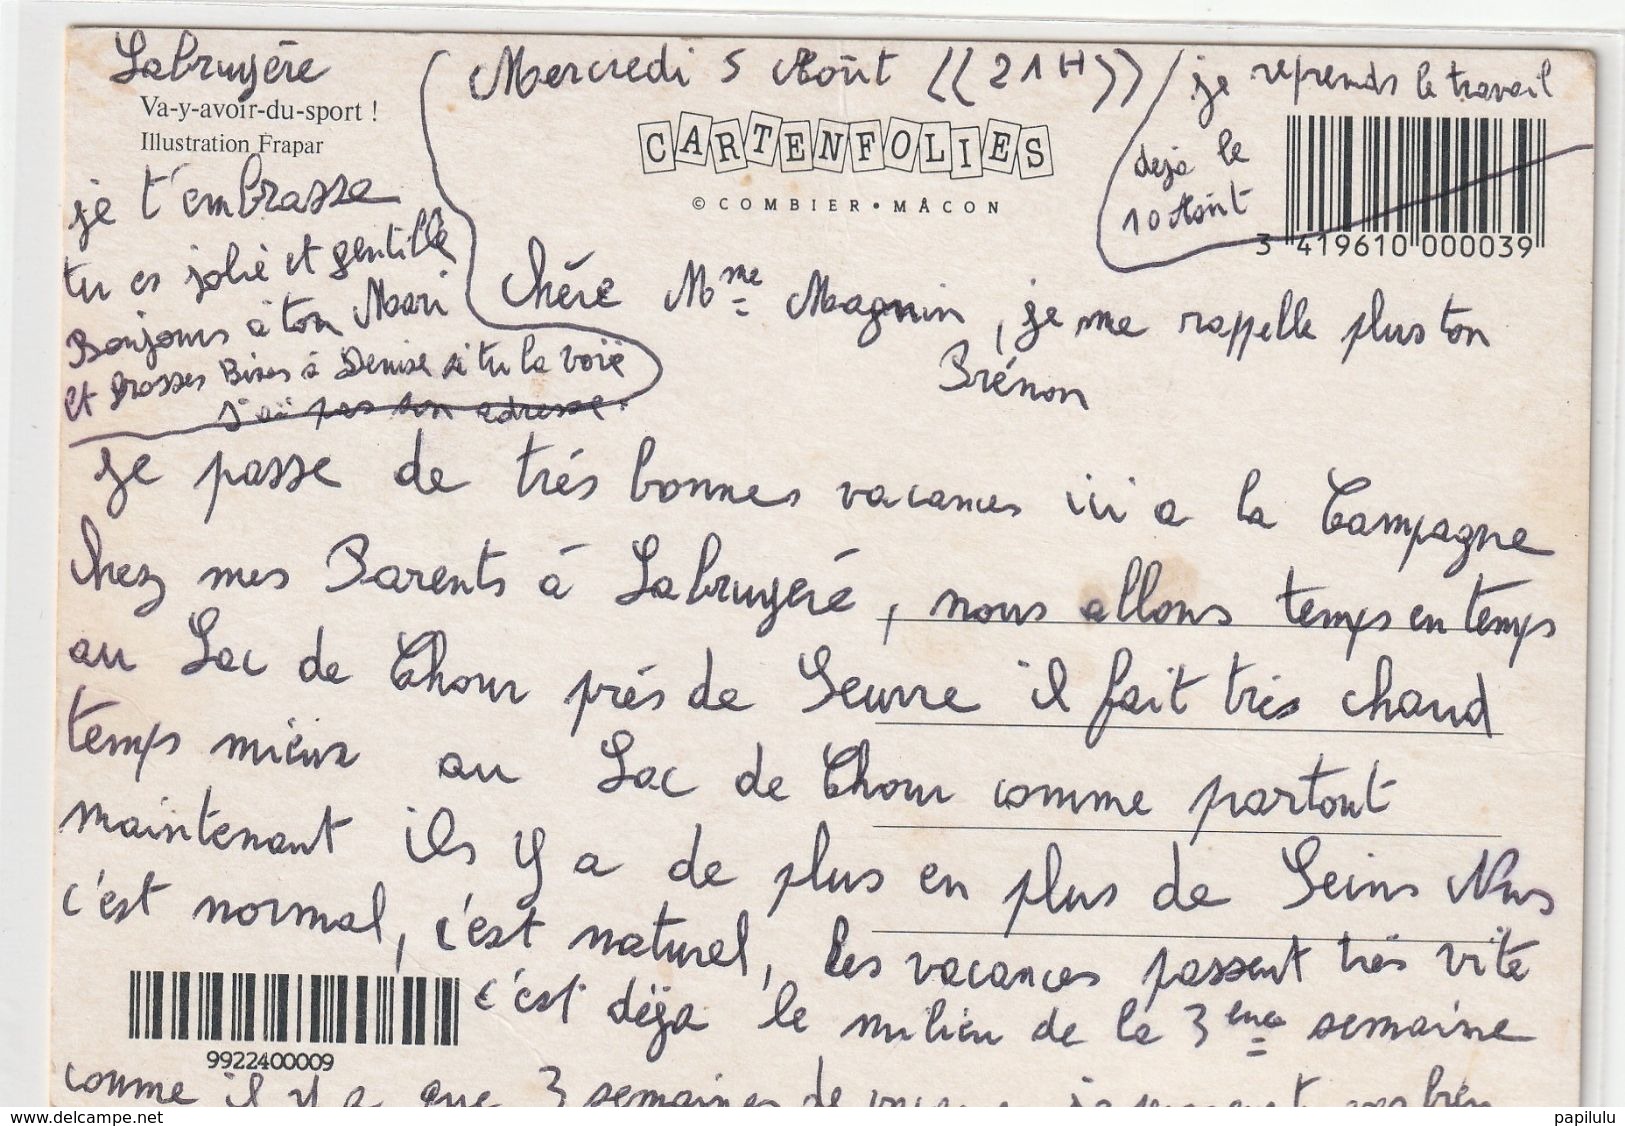 Labruyére
Va-y-avoir-du-sport !
Illustration Frapar
Mercredi 5 Août ((21H))
je reprends le travail
deja le
10 Août
CARTENFOLIES
© COMBIER • MÂCON
3 419610 000039
je t'embrasse
tu es jolie et gentille
Bonjours à ton Mari
et Grosses Bises à Denise si tu la voië
j'ai pas son adresse.
Chére Mme Magnin, je me rappelle plus ton
Prénon
je passe de trés bonnes vacances ici a la Campagne
chez mes Parents à Labruyéré, nous allons temps en temps
au Lac de Chour prés de Seurre il fait trés chaud
temps mieux au Lac de Chour comme partout
maintenant ils y a de plus en plus de Seins Nus
c'est normal, c'est naturel, les vacances passent trés vite
c'est déja le milieu de la 3eme semaine
9922400009
comme il y a que 3 semaines de
www.delcampe.net
papilulu